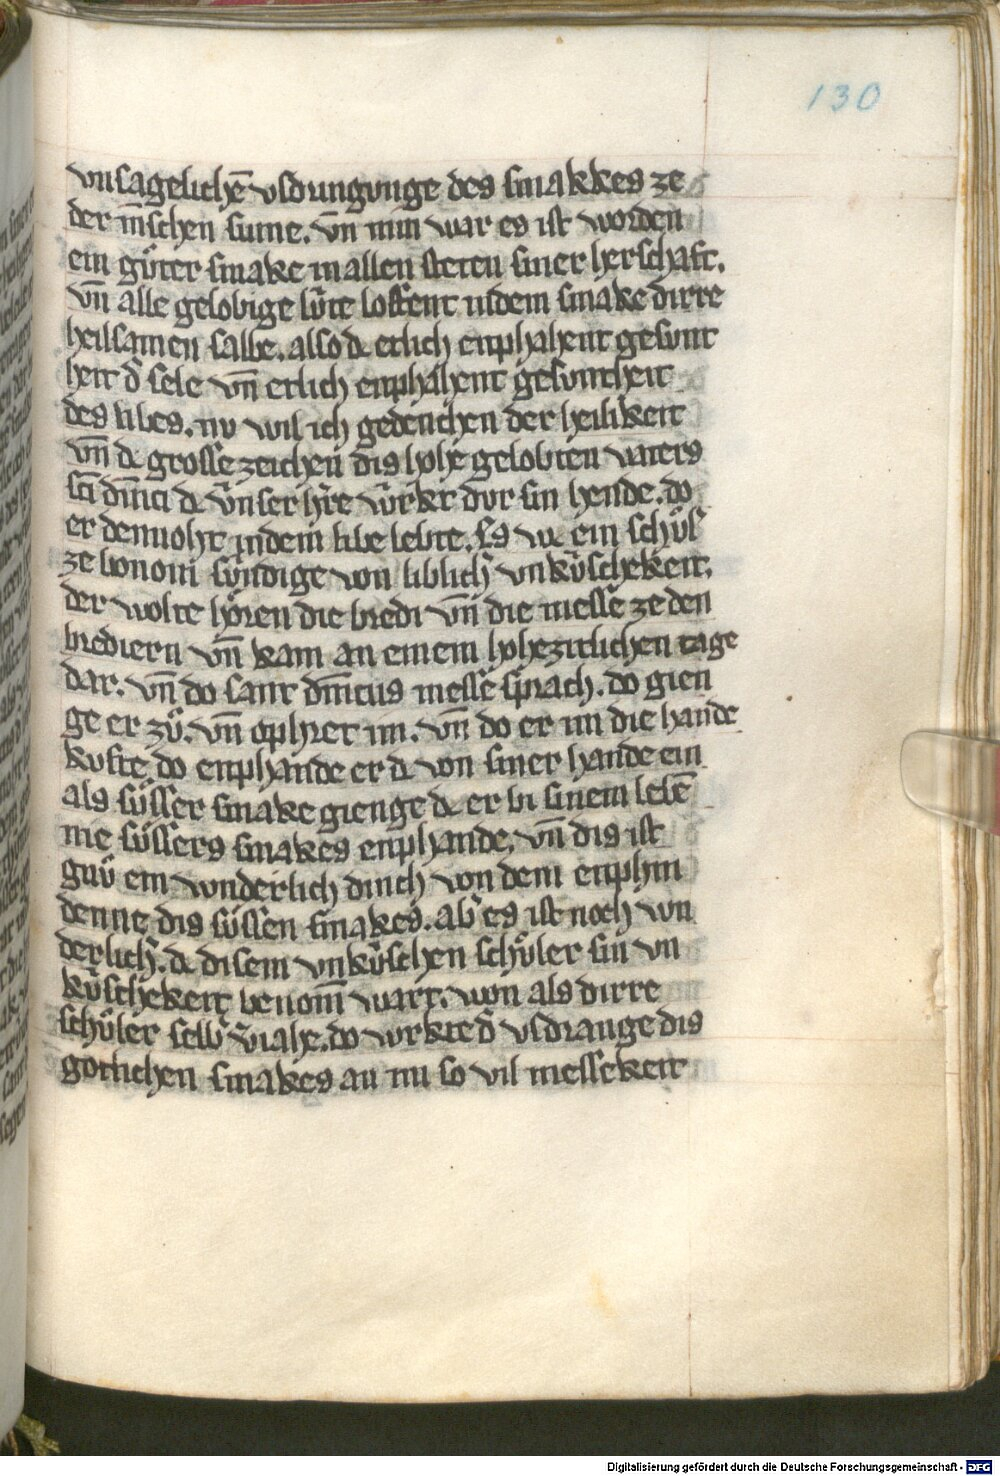 130
vnsagelichē vsdrungvnge des smakkes ze
der m̄schen sinne. vn̄ nim war es ist worden
ein gůter smake in allen steten siner herschaft.
vn̄ alle gelobige lv̂te loffent in dem smake dirre
heilsamen salbe. also dc etlich enphahent gesunt
heit d̕ sele vn̄ etlich enphahent gesuntheit
des libes. nv wil ich gedenchen der heilikeit
vn̄ dc grosse zeichen dis hohe gelobten vaters
sc̄i dn̄ici dc vnser h̕re wrkt dvr sin hende. do
er dennoht in dem libe lebte. Es wc ein schv̊l
ze bononi sv́ndige von liblich̕ vnkv́schekeit.
der wolte hôren die bredi vn̄ die messe ze den
brediern vn̄ kam an einem hohezitlichen tage
dar. vn̄ do sant dn̄icus messe sprach. do gien
ge er zů. vn̄ ophret im. vn̄ do er im die hande
kuste do enphande er dc von siner hande ein
als sůsser smake gienge dc er bi sinem lebē
nie sůssers smakes enphande. vn̄ dis ist
gnů ein wnderlich dinch von dem enphin
denne dis sůssen smakes. ab̕ es ist noch wn
derlich̕. dc disem vnkv́schen schůler sin vn
kv́schekeit benom̄ wart. won als dirre
schůler selb v̕iahe. do wrkte d̕ vsdrange dis
gotlichen smakes an im so vil messekeit
Digitalisierung gefördert durch die Deutsche Forschungsgemeinschaft - DFG